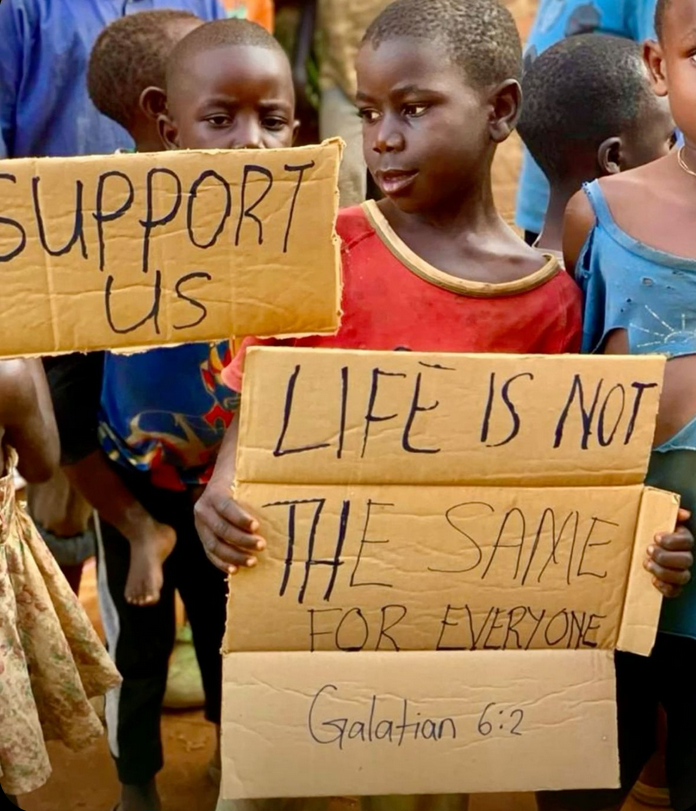 SUPPORT
US
LIFE IS NOT
THE SAME
FOR EVERYONE
Galatian 6:2